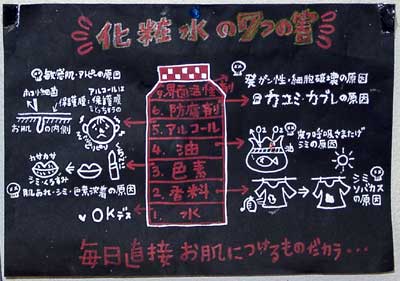 化粧水の7つの害
敏感肌・アトピーの原因
ホコリ・細菌
アルコールは
保護膜
保護膜
とっちゃうの
お肌の内側
カサカサ
シミ・くすみ
くちびる
肌あれ・シミ・色素沈着の原因
OKデス
7.界面活性剤
6.防腐剤
5.アルコール
4.油
3.色素
2.香料
1.水
発ガン性・細胞破壊の原因
カユミ・カブレの原因
皮フ呼吸をさまたげ
シミの原因
O2
O2
油
シミ
ソバカス
の原因
毎日直接お肌につけるものだカラ・・・